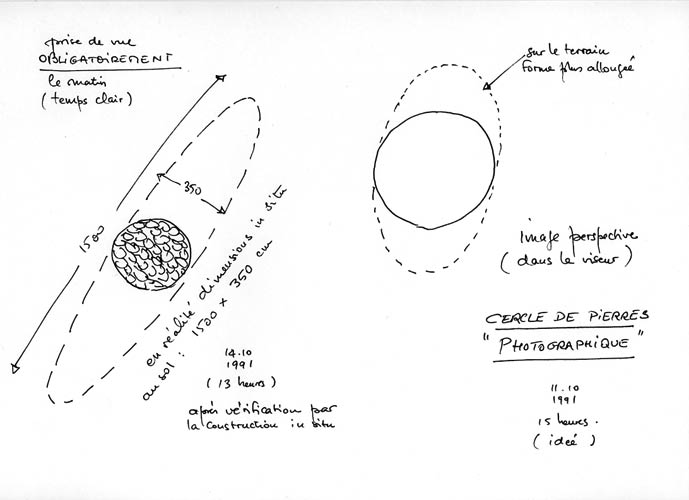 prise de vue
OBLIGATOIREMENT
le matin
(temps clair)
1500
350
en réalité dimensions in situ
au sol : 1500 x 350 cm
14.10
1991
(13 heures)
après vérification par
la construction in situ
sur le terrain
forme plus allongée
Image perspective
(dans le viseur)
CERCLE DE PIERRES
"PHOTOGRAPHIQUE"
11.10
1991
15 heures.
(idée)